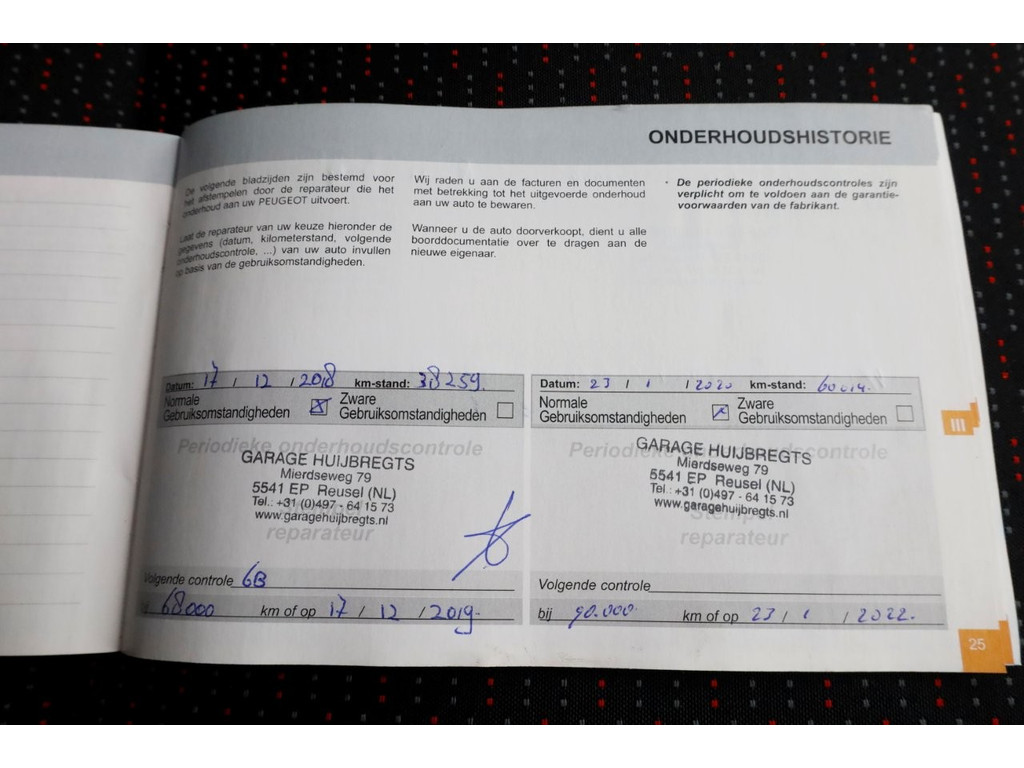 ONDERHOUDSHISTORIE
De volgende bladzijden zijn bestemd voor
het afstempelen door de reparateur die het
onderhoud aan uw PEUGEOT uitvoert.
Laat de reparateur van uw keuze hieronder de
gegevens (datum, kilometerstand, volgende
onderhoudscontrole, ...) van uw auto invullen
op basis van de gebruiksomstandigheden.
Wij raden u aan de facturen en documenten
met betrekking tot het uitgevoerde onderhoud
aan uw auto te bewaren.
Wanneer u de auto doorverkoopt, dient u alle
boorddocumentatie over te dragen aan de
nieuwe eigenaar.
• De periodieke onderhoudscontroles zijn
verplicht om te voldoen aan de garantie-
voorwaarden van de fabrikant.
Datum: 17 / 12 / 2018 km-stand: 38259.
Normale
Gebruiksomstandigheden
Zware
Gebruiksomstandigheden
Periodieke onderhoudscontrole
GARAGE HUIJBREGTS
Mierdseweg 79
5541 EP Reusel (NL)
Tel.: +31 (0)497 - 64 15 73
www.garagehuijbregts.nl
reparateur
Volgende controle 6B
68.000 km of op 17 / 12 / 2019.
Datum: 23 / 1 / 2020 km-stand: 60014.
Normale
Gebruiksomstandigheden
Zware
Gebruiksomstandigheden
Periodieke onderhoudscontrole
GARAGE HUIJBREGTS
Mierdseweg 79
5541 EP Reusel (NL)
Tel.: +31 (0)497 - 64 15 73
www.garagehuijbregts.nl
Stempel
reparateur
Volgende controle
bij 90.000 km of op 23 / 1 / 2022.
III
25